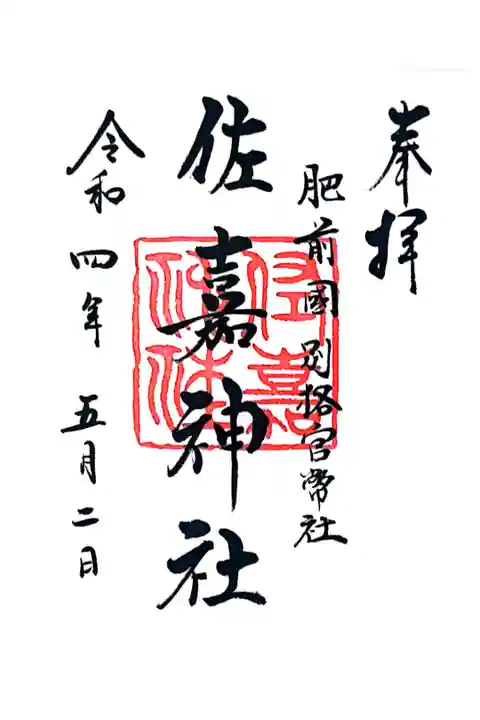 奉拝
肥前國別格官幣社
佐嘉神社
令和四年五月二日
佐嘉神社